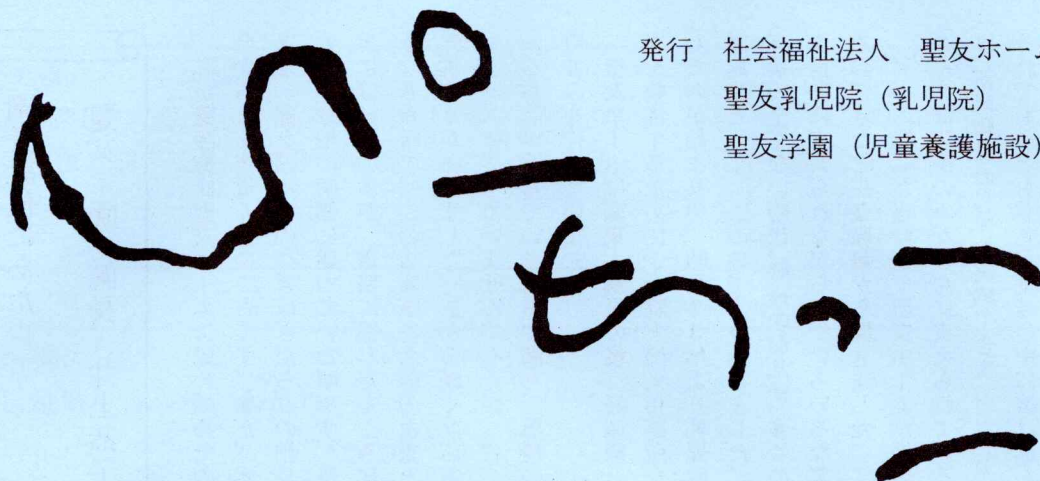 発行 社会福祉法人 聖友ホーム
聖友乳児院（乳児院）
聖友学園（児童養護施設）
ぴーちっこ